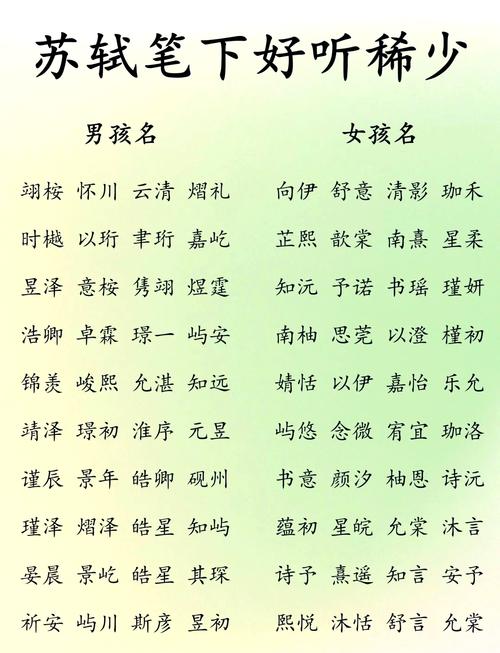 苏轼笔下好听稀少
男孩名 女孩名
翊桉 怀川 云清 熠礼 向伊 舒意 清影 珈禾
时樾 以珩 聿珩 嘉屹 芷熙 歆棠 南熹 星柔
昱泽 意桉 隽翊 煜霆 知沅 予诺 书瑶 瑾妍
浩卿 卓霖 璟一 屿安 南柚 思莞 以澄 槿初
锦羡 峻熙 允湛 知远 婧恬 以伊 嘉怡 乐允
靖泽 璟初 淮序 元昱 屿悠 念微 宥宜 珈洛
谨辰 景年 皓卿 砚州 书意 颜汐 柚恩 诗沅
瑾泽 熠泽 皓星 知屿 蕴初 星皖 允棠 沐言
晏晨 景屹 皓星 其琛 诗予 熹遥 知言 安予
祈安 屿川 斯彦 昱初 熙悦 沐恬 舒言 允棠